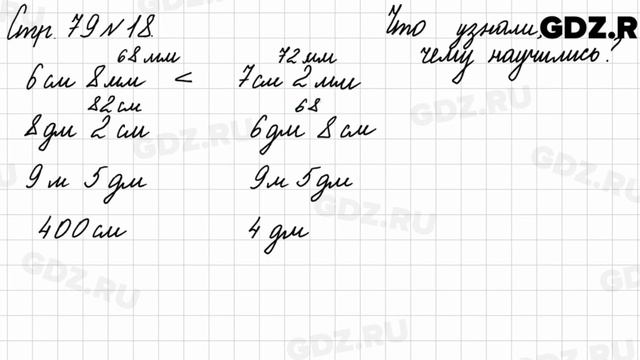 Стр. 79 N 18.
Что узнали,
чему научились?
GDZ.R
68 мм 72 мм
6 см 8 мм < 7 см 2 мм
82 см 68
8 дм 2 см 6 дм 8 см
9 м 5 дм 9 м 5 дм
400 см 4 дм
GDZ.RU
GDZ.RU
GDZ.RU
GDZ.RU
GDZ.RU